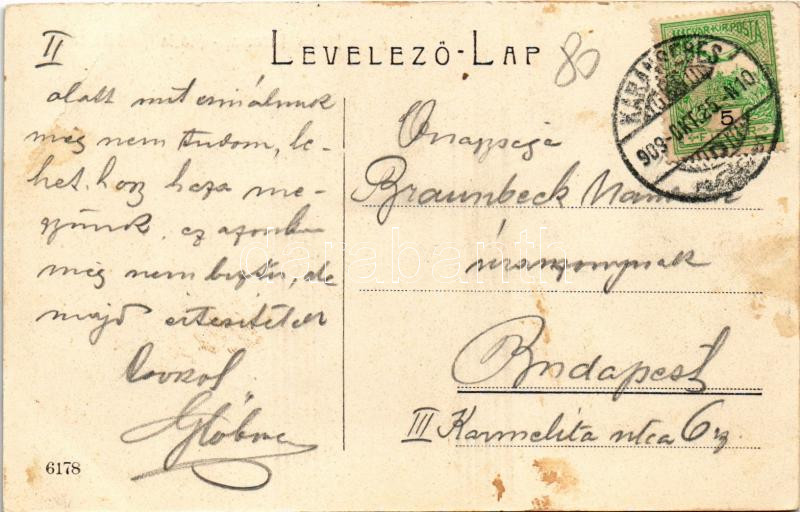 II
LEVELEZŐ-LAP
80
MAGYAR KIR. POSTA
5
KARÁNSEBES
909 OKT 25
alatt mit csinálunk
még nem tudom, le-
het, hogy haza me-
gyünk, ez azonban
még nem biztos, de
majd értesítelek
Csókol
6178
Őnagysága
Braunbeck
úrasszonynak
Budapest
III Karmelita utca 6 sz
darabanth